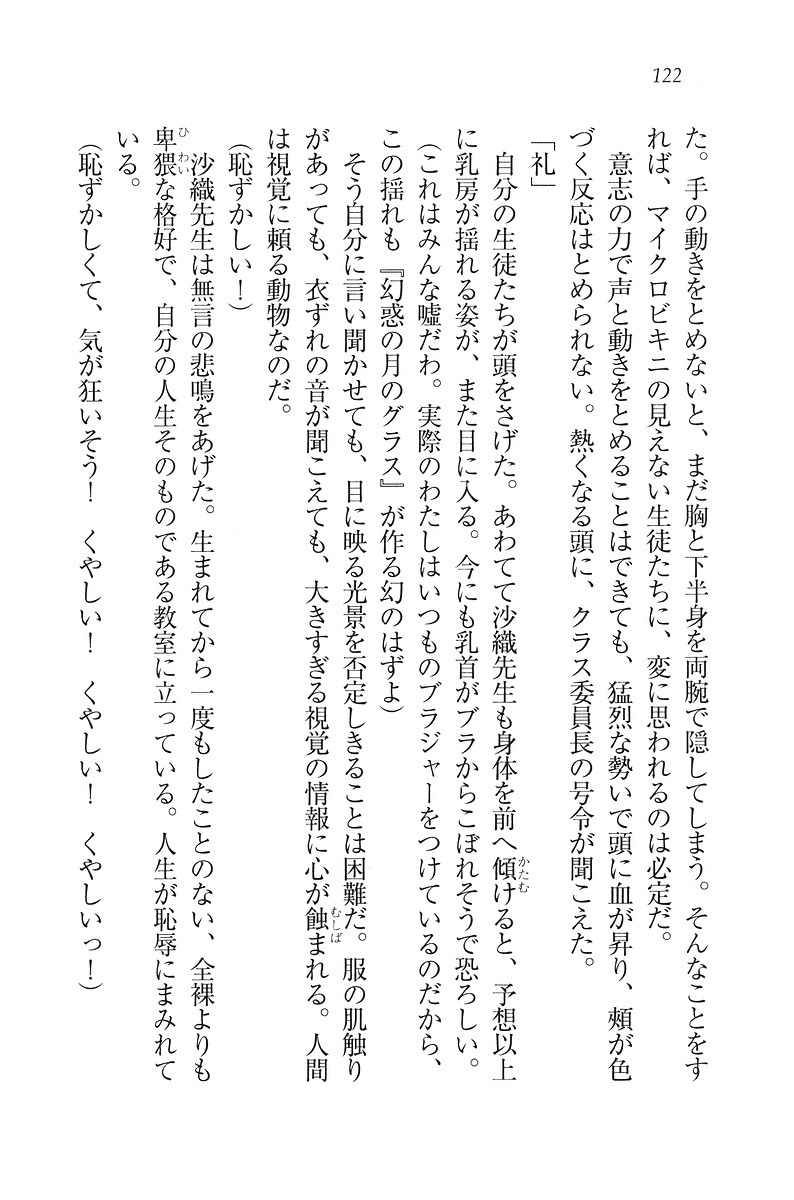 122
た。手の動きをとめないと、まだ胸と下半身を両腕で隠してしまう。そんなことをす
れば、マイクロビキニの見えない生徒たちに、変に思われるのは必定だ。
意志の力で声と動きをとめることはできても、猛烈な勢いで頭に血が昇り、頰が色
づく反応はとめられない。熱くなる頭に、クラス委員長の号令が聞こえた。
「礼」
自分の生徒たちが頭をさげた。あわてて沙織先生も身体を前へ傾けると、予想以上
に乳房が揺れる姿が、また目に入る。今にも乳首がブラからこぼれそうで恐ろしい。
(これはみんな嘘だわ。実際のわたしはいつものブラジャーをつけているのだから、
この揺れも『幻惑の月のグラス』が作る幻のはずよ)
そう自分に言い聞かせても、目に映る光景を否定しきることは困難だ。服の肌触り
があっても、衣ずれの音が聞こえても、大きすぎる視覚の情報に心が蝕まれる。人間
は視覚に頼る動物なのだ。
(恥ずかしい!)
沙織先生は無言の悲鳴をあげた。生まれてから一度もしたことのない、全裸よりも
卑猥な格好で、自分の人生そのものである教室に立っている。人生が恥辱にまみれて
いる。
(恥ずかしくて、気が狂いそう! くやしい! くやしい! くやしいっ!)